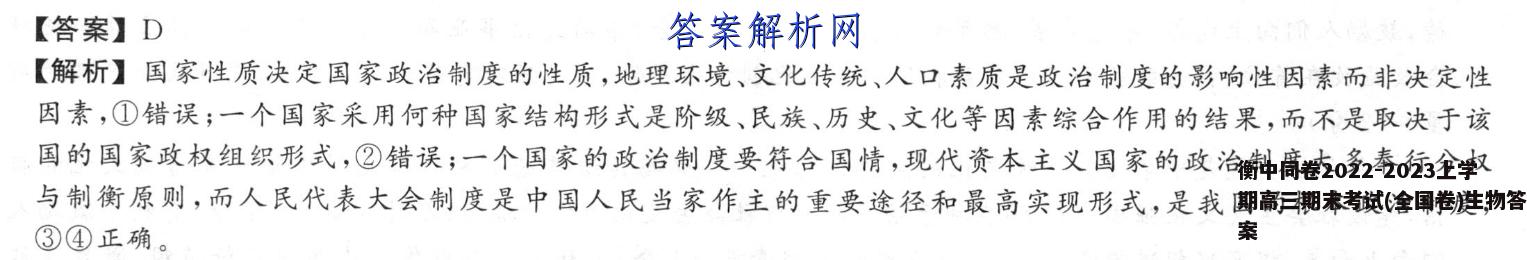 【答案】D
答案解析网
【解析】国家性质决定国家政治制度的性质,地理环境、文化传统、人口素质是政治制度的影响性因素而非决定性
因素,①错误;一个国家采用何种国家结构形式是阶级、民族、历史、文化等因素综合作用的结果,而不是取决于该
国的国家政权组织形式,②错误;一个国家的政治制度要符合国情,现代资本主义国家的政治制度大多奉行分权
与制衡原则,而人民代表大会制度是中国人民当家作主的重要途径和最高实现形式,是我
③④正确。
衡中同卷2022-2023上学
期高三期末考试(全国卷)生物答
案